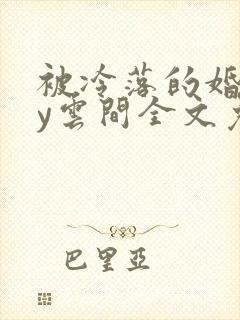 被冷落的婚
y雲間全文
巴里亞